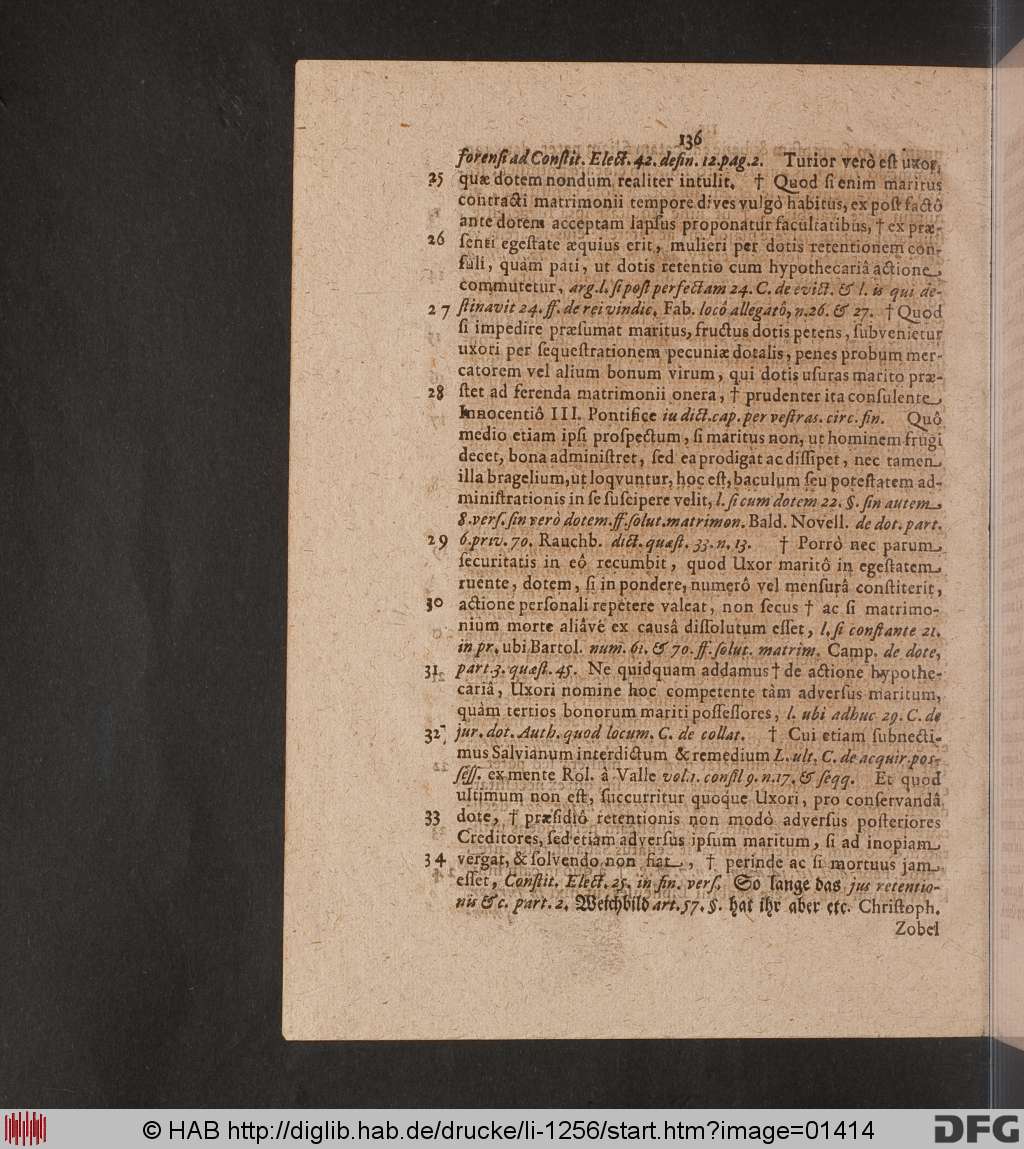 136
forensi ad Constit. Elect. 42. defin. 12. pag. 2. Tutior verò est uxor,
25 quæ dotem nondum realiter intulit. † Quod si enim maritus
contracti matrimonii tempore dives vulgò habitus, ex post factô
ante dotem acceptam lapsus proponatur facultatibus, † ex præ-
26 senti egestate æquius erit, mulieri per dotis retentionem con-
suli, quàm pati, ut dotis retentio cum hypothecariâ actione
commutetur, arg. l. si post perfectam 24. C. de evict. & l. is qui de-
27 stinavit 24. ff. de rei vindic. Fab. locô allegatô, n. 26. & 27. † Quod
si impedire præsumat maritus, fructus dotis petens, subvenietur
uxori per sequestrationem pecuniæ dotalis, penes probum mer-
catorem vel alium bonum virum, qui dotis usuras marito præ-
28 stet ad ferenda matrimonii onera, † prudenter ita consulente
Innocentiô III. Pontifice iu dict. cap. per vestras. circ. fin. Quô
medio etiam ipsi prospectum, si maritus non, ut hominem frugi
decet, bona administret, sed ea prodigat ac dissipet, nec tamen
illa bragelium, ut loqvuntur, hoc est, baculum seu potestatem ad-
ministrationis in se suscipere velit, l. si cum dotem 22. §. sin autem
8. vers. sin verò dotem. ff. solut. matrimon. Bald. Novell. de dot. part.
29 6. priv. 70. Rauchb. dict. quæst. 33. n. 13. † Porrò nec parum
securitatis in eô recumbit, quod Uxor maritô in egestatem
ruente, dotem, si in pondere, numerô vel mensurâ constiterit,
30 actione personali repetere valeat, non secus † ac si matrimo-
nium morte aliâve ex causâ dissolutum esset, l. si constante 21.
in pr. ubi Bartol. num. 61. & 70. ff. solut. matrim. Camp. de dote,
31. part. 3. quæst. 45. Ne quidquam addamus † de actione hypothe-
cariâ, Uxori nomine hoc competente tàm adversus maritum,
quàm tertios bonorum mariti possessores, l. ubi adhuc 29. C. de
32 jur. dot. Auth. quod locum. C. de collat. † Cui etiam subnecti-
mus Salvianum interdictum & remedium L. ult. C. de acquir. pos-
sess. ex mente Rol. à Valle vol. 1. consil 9. n. 17. & seqq. Et quod
ultimum non est, succurritur quoque Uxori, pro conservandâ
33 dote, † præsidiô retentionis non modò adversus posteriores
Creditores, sed etiam adversus ipsum maritum, si ad inopiam
34 vergat, & solvendo non fiat, † perinde ac si mortuus jam
esset, Constit. Elect. 25. in fin. vers. So lange das jus retentio-
nis &c. part. 2. Weichbild art. 57. §. hat ihr aber etc. Christoph.
Zobel
© HAB http://diglib.hab.de/drucke/li-1256/start.htm?image=01414
DFG